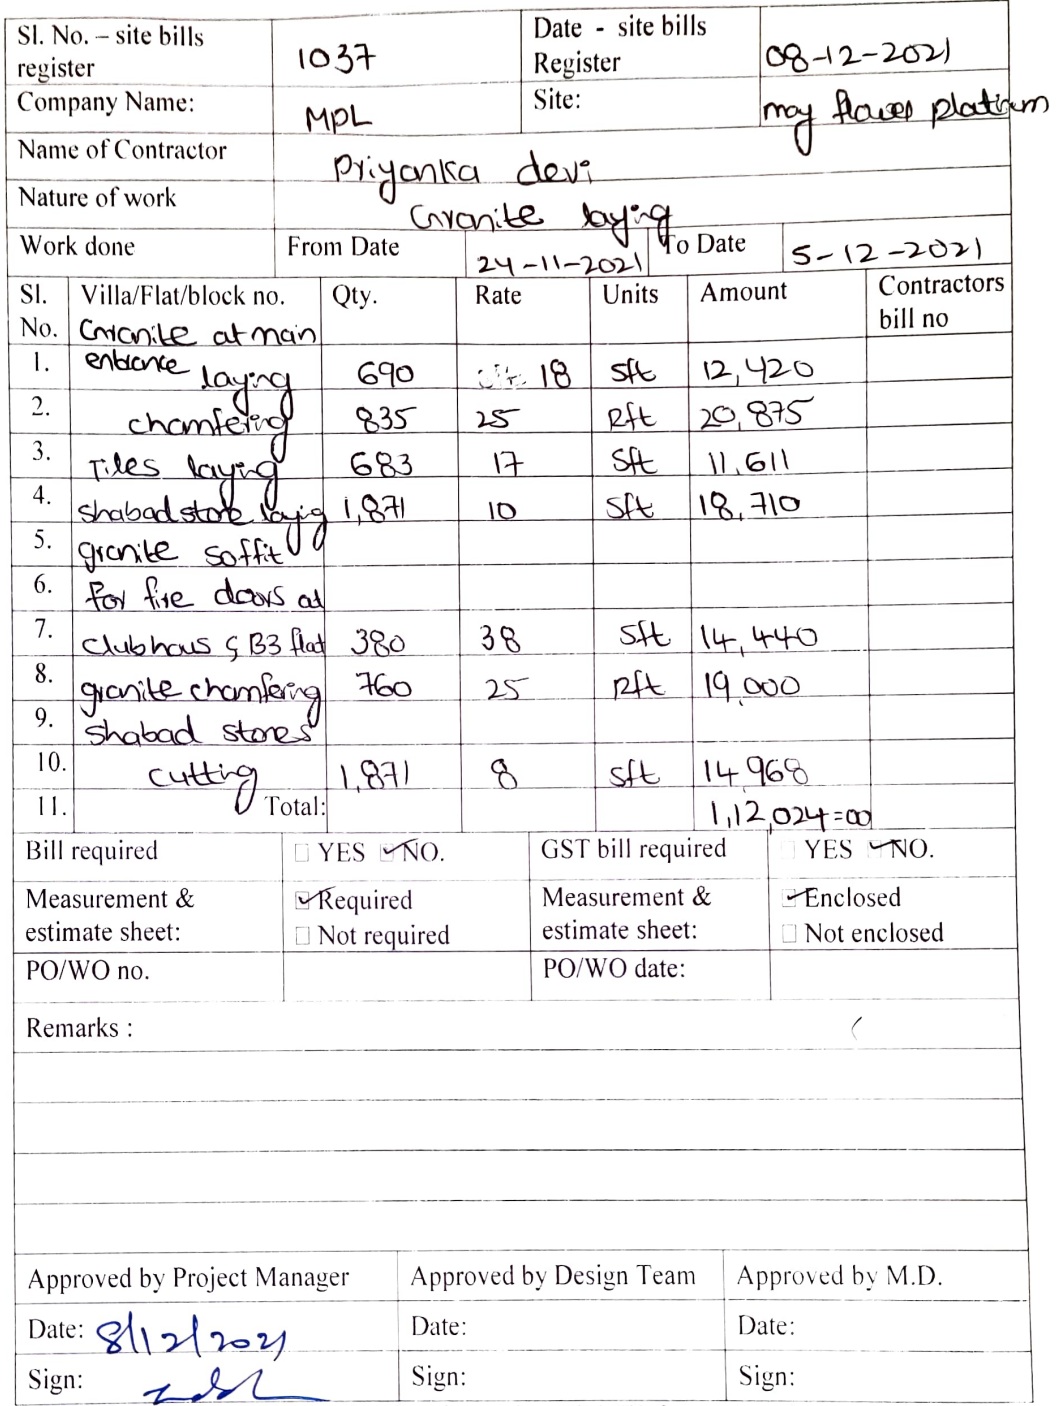 Sl. No. – site bills register 1037 Date - site bills Register 08-12-2021
Company Name: MPL Site: may flower platinum
Name of Contractor Priyanka devi
Nature of work Granite laying
Work done From Date 24-11-2021 To Date 5-12-2021
Sl. No. Villa/Flat/block no. Qty. Rate Units Amount Contractors bill no
Granite at main
1. entrance laying 690 18 sft 12,420
2. chamfering 835 25 Rft 20,875
3. Tiles laying 683 17 sft 11,611
4. shabad stone laying 1,871 10 sft 18,710
5. granite soffit
6. for fire doors at
7. clubhous & B3 flat 380 38 sft 14,440
8. granite chamfering 760 25 Rft 19,000
9. shabad stones
10. cutting 1,871 8 sft 14,968
11. Total: 1,12,024=00
Bill required YES NO. GST bill required YES NO.
Measurement & estimate sheet: Required Not required Measurement & estimate sheet: Enclosed Not enclosed
PO/WO no. PO/WO date:
Remarks :
Approved by Project Manager Approved by Design Team Approved by M.D.
Date: 8/12/2021 Date: Date:
Sign: Sign: Sign: